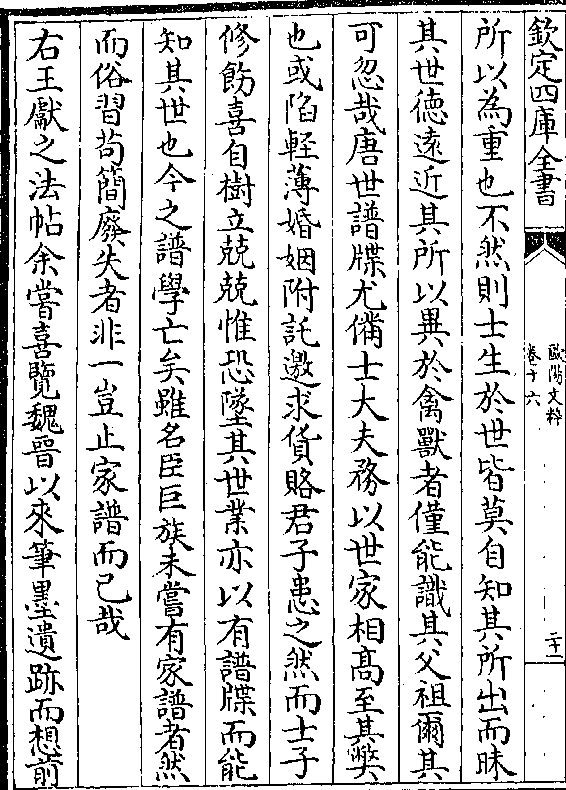 欽定四庫全書
歐陽文粹
卷十六
二十一
所以為重也不然則士生於世皆莫自知其所出而昧
其世徳逺近其所以異於禽獸者僅能識其父祖爾其
可忽哉唐世譜牒尤備士大夫務以世家相髙至其弊
也或陷輕薄婚姻附託邀求貨賂君子患之然而士子
修飭喜自樹立兢兢惟恐墜其世業亦以有譜牒而能
知其世也今之譜學亡矣雖名臣巨族未嘗有家譜者然
而俗習茍簡廢失者非一豈止家譜而已哉
右王獻之法帖余嘗喜覽魏晉以來筆墨遺跡而想前